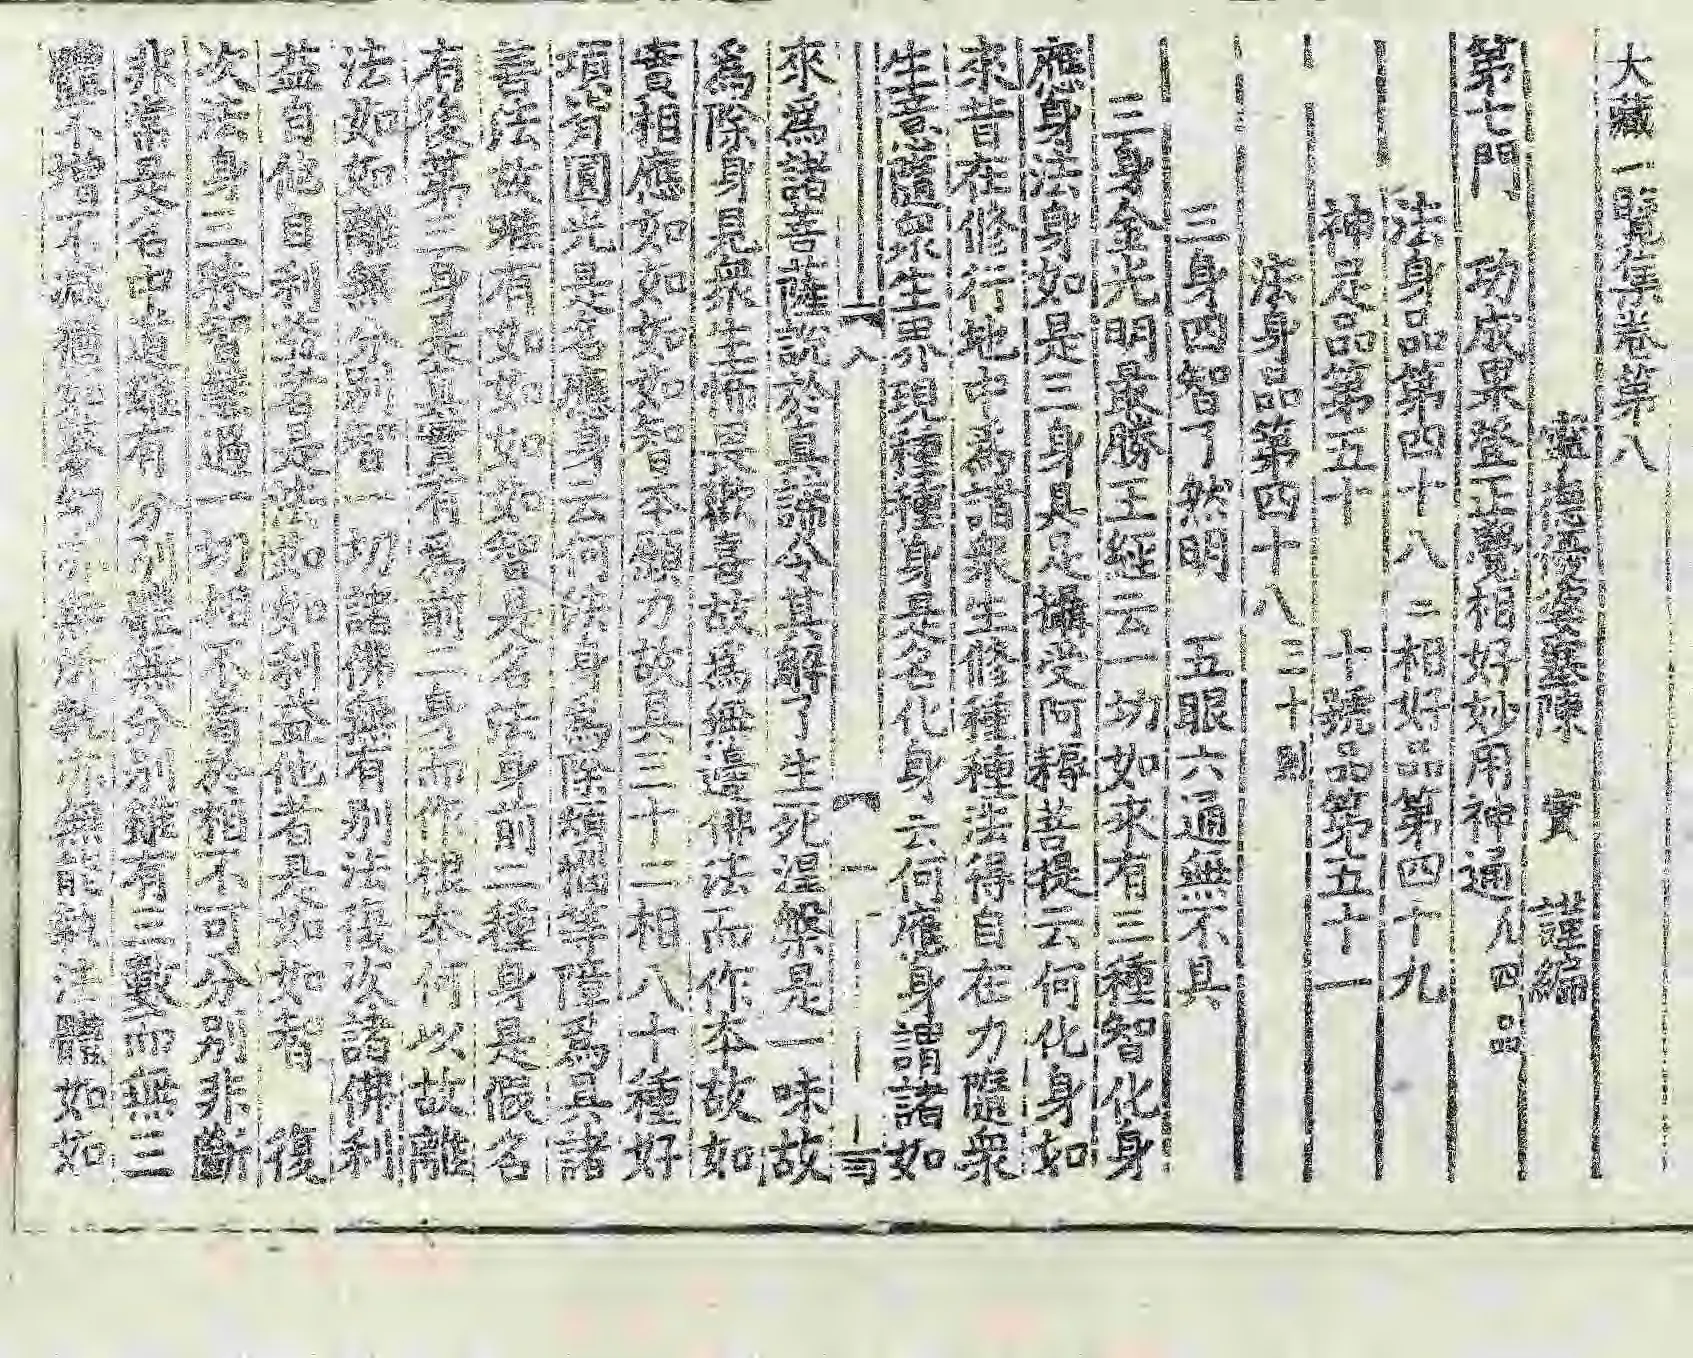 大藏一覽集卷第八
寧德優婆塞陳　實　謹編
第七門　功成果登正覺相好妙用神通凡四品
法身品第四十八　二相好品第四十九
神足品第五十　十號品第五十一
法身品第四十八　三十則
三身四智了然明　五眼六通無不具
三身金光明最勝王經云一切如來有三種智化身
應身法身如是三身具足攝受阿耨菩提云何化身如
來昔在修行地中為諸眾生修種種法得自在力隨眾
生意隨眾生界現種種身是名化身云何應身謂諸如
八　二
來為諸菩薩說於真諦令其解了生死涅槃是一味故
為除身見眾生怖畏歡喜故為無邊佛法而作本故如
實相應如如如如智本願力故具三十二相八十種好
項背圓光是名應身云何法身為除煩惱等障為具諸
善法故唯有如如如如智是名法身前二種身是假名
有後第三身是真實有為前二身而作根本何以故離
法如如離無分別智一切諸佛無有別法復次諸佛利
益自他自利益者是法如如利益他者是如如智　復
次法身三昧智慧過一切相不著於相不可分別非斷
非常是名中道雖有分別體無分別雖有三數而無三
體不增不減猶如夢幻亦無所執亦無能執法體如如